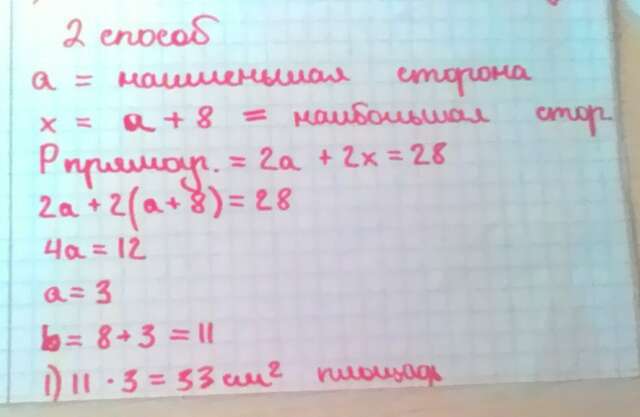 2 способ
a = наименьшая сторона
x = a + 8 = наибольшая стор.
P прямоуг. = 2a + 2x = 28
2a + 2(a + 8) = 28
4a = 12
a = 3
b = 8 + 3 = 11
1) 11 · 3 = 33 см² площадь